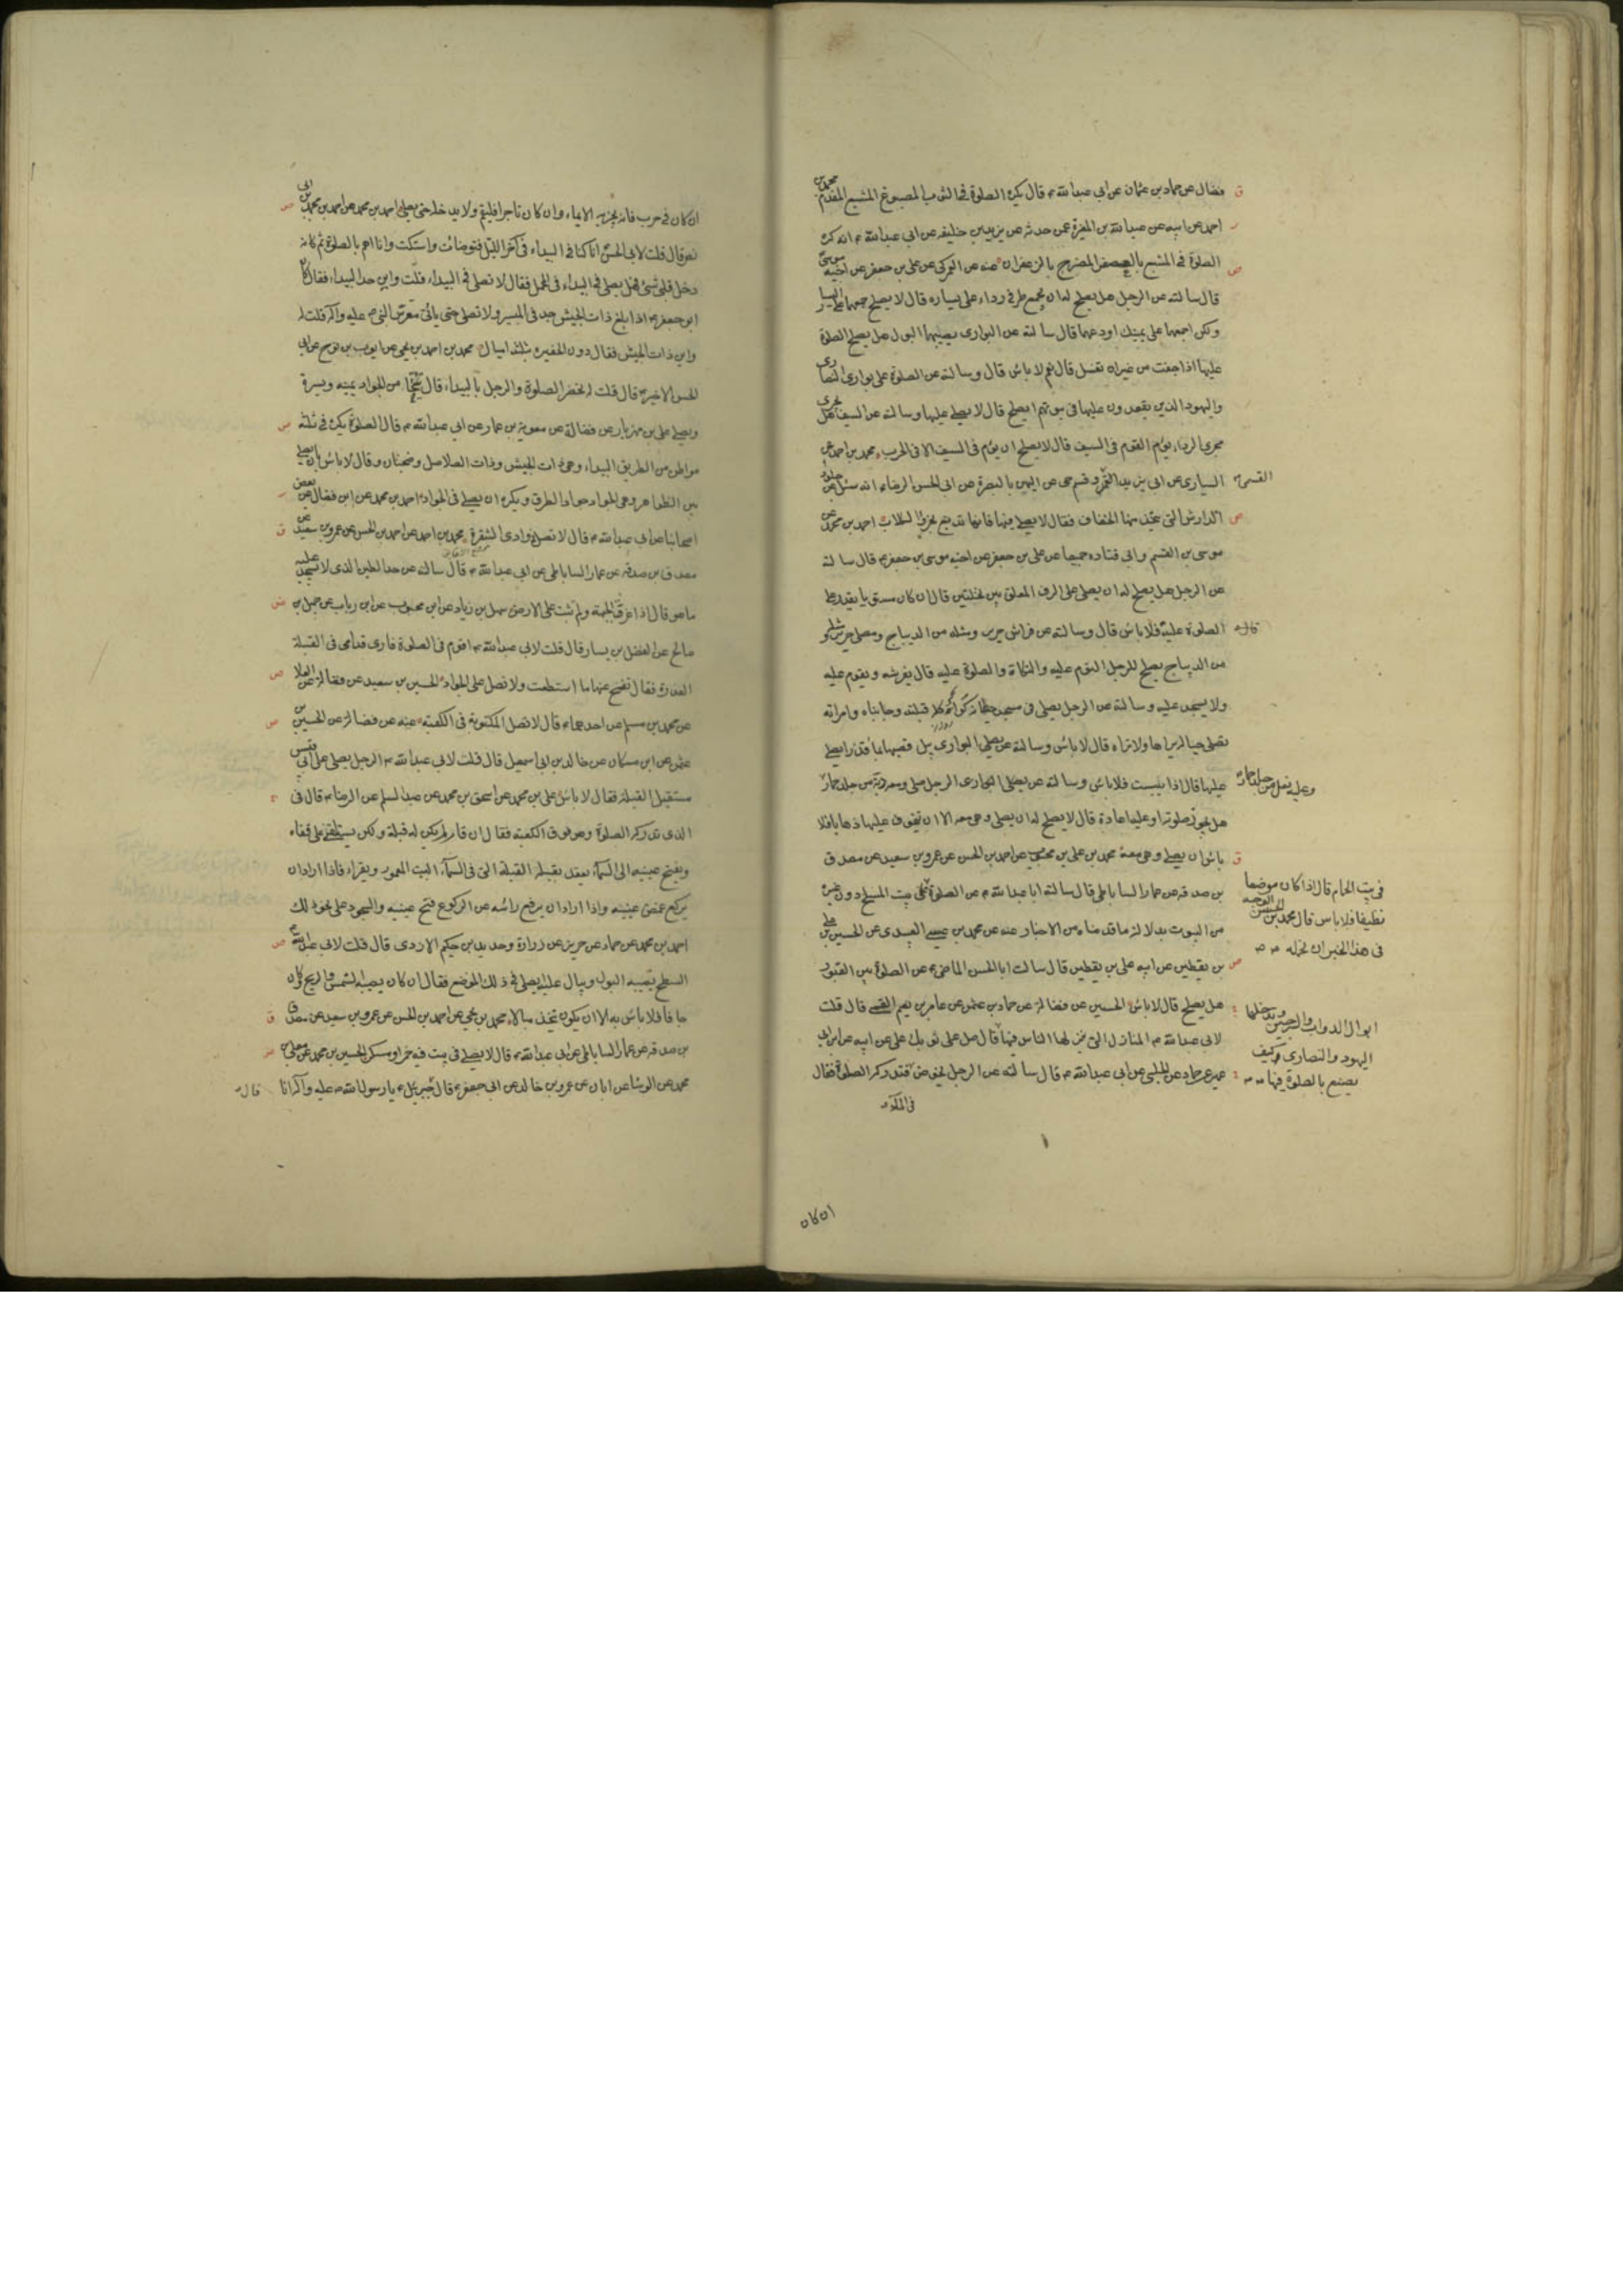 فضال عن حماد بن عثمان عن ابي عبد الله ع قال يكره الصلوة في الثوب المصبوغ المشبع المفدم محمد بن
احمد عن ابيه عن عبد الله بن المغيرة عمن حدثه عن يزيد بن خليفه عن ابي عبد الله ع انه كره
الصلوة في المشبع بالعصفر المضرج بالزعفران عنه عن العمركي عن علي بن جعفر عن اخيه موسى
قال سالته عن الرجل هل يصلح له ان يجمع طرفي رداءه على يساره قال لا يصلح جمعها على اليسار
ولكن اجمعها على يمينك او دعها قال سالته عن البواري يصيبها البول هل يصلح الصلوة
عليها اذا جفت من غير ان تغسل قال نعم لا باس قال وسالته عن الصلوة على بواري النصارى
واليهود الذين يقعدون عليها في بيوتهم ايصلح قال لا يصلى عليها وسالته عن السيف هل يجرى
مجرى الرداء يؤم القوم في السيف قال لا يصلح ان يؤم في السيف الا في الحرب محمد بن احمد عن
السيارى عن ابي يزيد القسمى وقسم حي من اليمن بالبصرة عن ابي الحسن الرضا ع انه سئله عن جلود
القسمى
الدارش التي يتخذ منها الخفاف فقال لا يصلى فيها فانها تدبغ بخرء الكلاب احمد بن محمد عن
موسى بن القسم وابي قتاده جميعا عن علي بن جعفر عن اخيه موسى بن جعفر ع قال سالته
عن الرجل هل يصلح له ان يصلى على الرف المعلق بين نخلتين قال ان كان مستويا يقدر على
الصلوة عليه فلا باس قال وسالته عن فراش حرير ومثله من الديباج ومصلى حرير ومثله
من الديباج يصلح للرجل النوم عليه والتكاة والصلوة عليه قال يفرشه ويقوم عليه
ولا يسجد عليه وسالته عن الرجل يصلى في مسجد حيطانه كواء كله قبلته وجانباه وامراته
تصلى حياله يراها ولا تراه قال لا باس وسالته عن البواري يبل قصبها بماء قذر ايصلى
عليها قال اذا يبست فلا باس وسالته عن الرجل صلى ومعه دبة من جلد حمار
وعليه نعل من جلد حمار
هل يجوز صلوته او عليه اعادة قال لا يصلح له ان يصلى وهي معه الا ان يتخوف عليها ذهابا فلا
باس ان يصلى وهي معه محمد بن علي بن محبوب عن احمد بن الحسن عن عمرو بن سعيد عن مصدق
بن صدقه عن عمار الساباطى قال سالته ابا عبد الله ع عن الصلوة في بيت المسلخ دون غيره
في بيت الحمام قال اذا كان موضعا
نظيفا فلا باس قال محمد بن الحسن الوجه
في هذا الخبر ان نحمله
من البيوت بدلالة ما قدمناه من الاخبار عنه عن محمد بن عيسى العبيدى عن الحسين بن علي
بن يقطين عن ابيه علي بن يقطين قال سالت ابا الحسن الماضي ع عن الصلوة بين القبور
هل يصلح قال لا باس الحسين عن فضالة عن حماد بن عثمن عن عامر بن نعيم القمي قال قلت
لابي عبد الله ع المنازل التي ينزلها الناس فيها قال صل على ثوبك علي عن ابيه عن ابن ابي
ابوال الدواب والسرجين ويدخلها
اليهود والنصارى فكيف
يصنع بالصلوة فيها
عمير عن حماد عن الحلبي عن ابي عبد الله ع قال سالته عن الرجل يخوض فتدركه الصلوة فقال
في الماء
ان كان
ان كان في حرب فانه يجزيه الايماء وان كان تاجرا فليقم ولا يدخله حتى يصلى احمد بن محمد عن احمد بن محمد بن ابى
نصر قال قلت لابي الحسن انا كنا في البيداء في اخر الليل فتوضات واستكت وانا اهم بالصلوة ثم كانه
دخل قلبي شئ فهل يصلى في البيداء في المحمل فقال لا تصلى في البيداء قلت واين حد البيداء فقال كان
ابو جعفر ع اذا بلغ ذات الجيش جد في المسير ولا تصلى حتى ياتي معرس النبي ص عليه واله قلت له
واين ذات الجيش فقال دون الحفيره بثلثة اميال محمد بن احمد بن يحيى عن ايوب بن نوح عن ابي
الحسن الاخير ع قال قلت له تحضر الصلوة والرجل بالبيداء قال يتنحى من الجواد يمينه ويسرة
ويصلى علي بن مهزيار عن فضالة عن معوية بن عمار عن ابي عبد الله ع قال الصلوة تكره في ثلثة
مواطن من الطريق البيداء وهي ذات الجيش وذات الصلاصل وضجنان وقال لا باس بان يصلى
بين الظواهر وهي الجواد جواد الطرق ويكره ان يصلى في الجواد احمد بن محمد عن ابن فضال عن بعض
اصحابنا عن ابي عبد الله ع قال لا تصل في وادى الشقرة محمد بن احمد عن احمد بن الحسن عن عمرو بن سعيد عن
مصدق بن صدقه عن عمار الساباطى عن ابي عبد الله ع قال سالته عن حد الطين الذى لا يسجد عليه
ما هو قال اذا غرق الجبهة ولم تثبت على الارض سهل بن زياد عن ابن محبوب عن ابن رياب عن جميل بن
صالح عن الفضل بن يسار قال قلت لابي عبد الله ع اقوم في الصلوة فارى قدامى في القبلة
العذرة فقال تنح عنها ما استطعت ولا تصل على الجواد الحسين بن سعيد عن فضالة عن العلا
عن محمد بن مسلم عن احدهما ع قال لا تصل المكتوبة في الكعبة عنه عن فضالة عن الحسين بن
عثمن عن ابن مسكان عن خالد بن ابي اسمعيل قال قلت لابي عبد الله ع الرجل يصلى على ابي قبيس
مستقبل القبلة فقال لا باس علي بن محمد عن اسحق بن محمد عن عبد السلم عن الرضا ع قال في
الذى تدركه الصلوة وهو فوق الكعبة فقال ان قام لم يكن له قبلة ولكن يستلقى على قفاه
ويفتح عينيه الى السماء ويعقد بقلبه القبلة التي في السماء البيت المعمور ويقراء فاذا اراد ان
يركع غمض عينيه واذا اراد ان يرفع راسه من الركوع فتح عينيه والسجود على نحو ذلك
احمد بن محمد عن حماد عن حريز عن زرارة وحديد بن حكيم الازدى قال قلت لابي عبد الله
السطح يصيبه البول ويبال عليه ايصلى في ذلك الموضع فقال ان كان يصيبه الشمس والريح وكان
جافا فلا باس به الا ان يكون يتخذ مبالا محمد بن يحيى عن احمد بن الحسن عن عمرو بن سعيد عن مصدق
بن صدقه عن عمار الساباطى عن ابي عبد الله ع قال لا يصلى في بيت فيه خمر او مسكر الحسين بن محمد عن معلى بن
محمد عن الوشا عن ابان عن عمرو بن خالد عن ابي جعفر ع قال جبرئيل ع يا رسول الله ص عليه واله انا